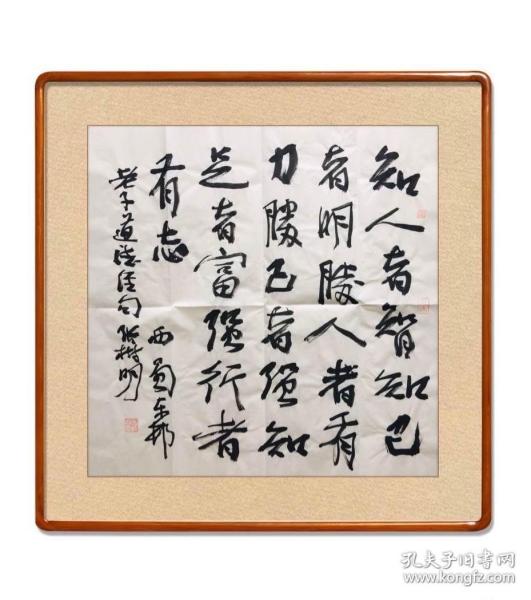 知人者智知己
者明胜人者有
力勝己者强知
足者富强行者
有志
西蜀乐邦
老子道德经句 张楷明
孔夫子旧书网
www.kongfz.com